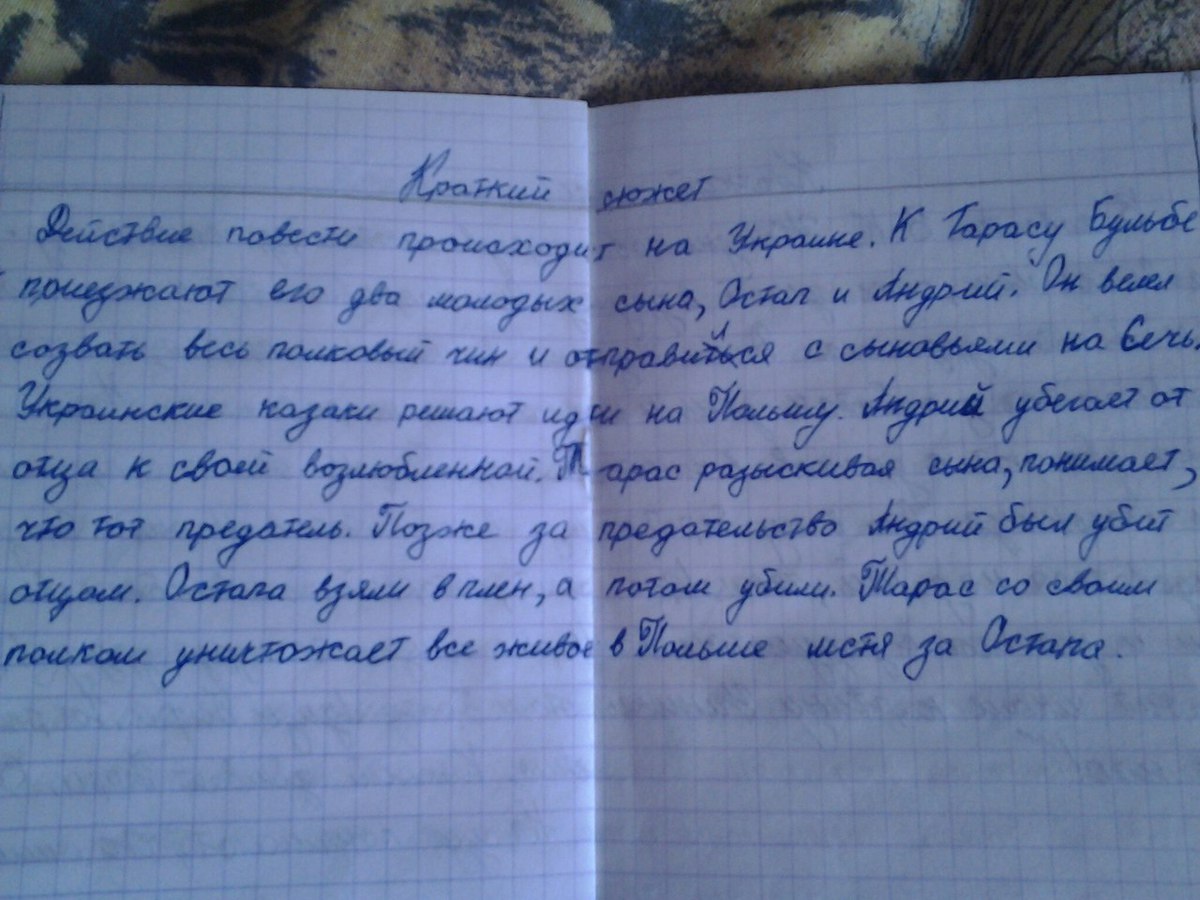 Краткий сюжет
Действие повести происходит на Украине. К Тарасу Бульбе
приезжают его два молодых сына, Остап и Андрий. Он велел
созвать весь полковый чин и отправился с сыновьями на Сечь.
Украинские казаки решают идти на Польшу. Андрий убегает от
отца к своей возлюбленной. Тарас разыскивая сына, понимает,
что тот предатель. Позже за предательство Андрий был убит
отцом. Остапа взяли в плен, а потом убили. Тарас со своим
полком уничтожает все живое в Польше мстя за Остапа.